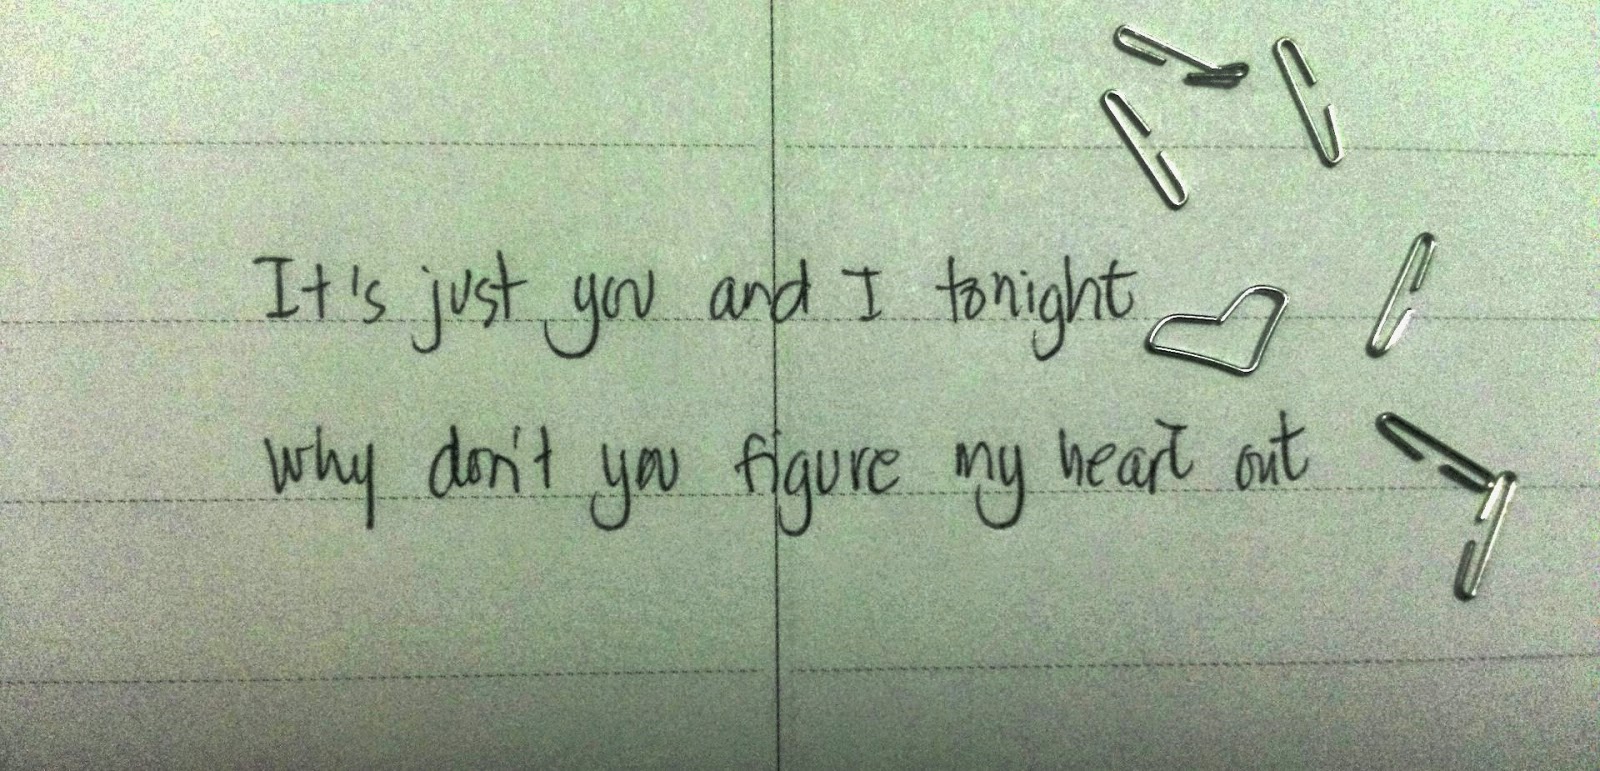 It's just you and I tonight
Why don't you figure my heart out